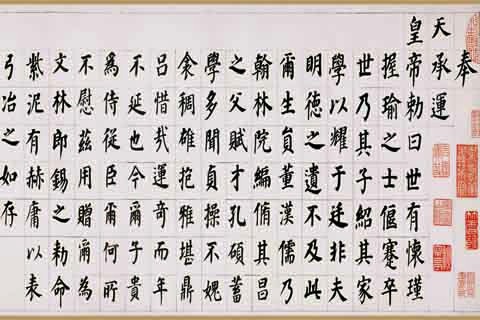 奉
天承運
皇帝勅曰世有懷瑾
握瑜之士偃蹇卒
世乃其子紹其家
學以耀于廷非夫
明徳之遺不及此
爾生員董漢儒乃
翰林院編脩其昌
之父賦才孔碩蓄
學多聞貞操不媿
衾稠雅堪鼎
呂惜哉運奇而年
不延也今爾子貴
為侍從臣爾何所
不慰茲用贈爾為
文林郎錫之勅命
紫泥有赫庸以表
弓冶之如存